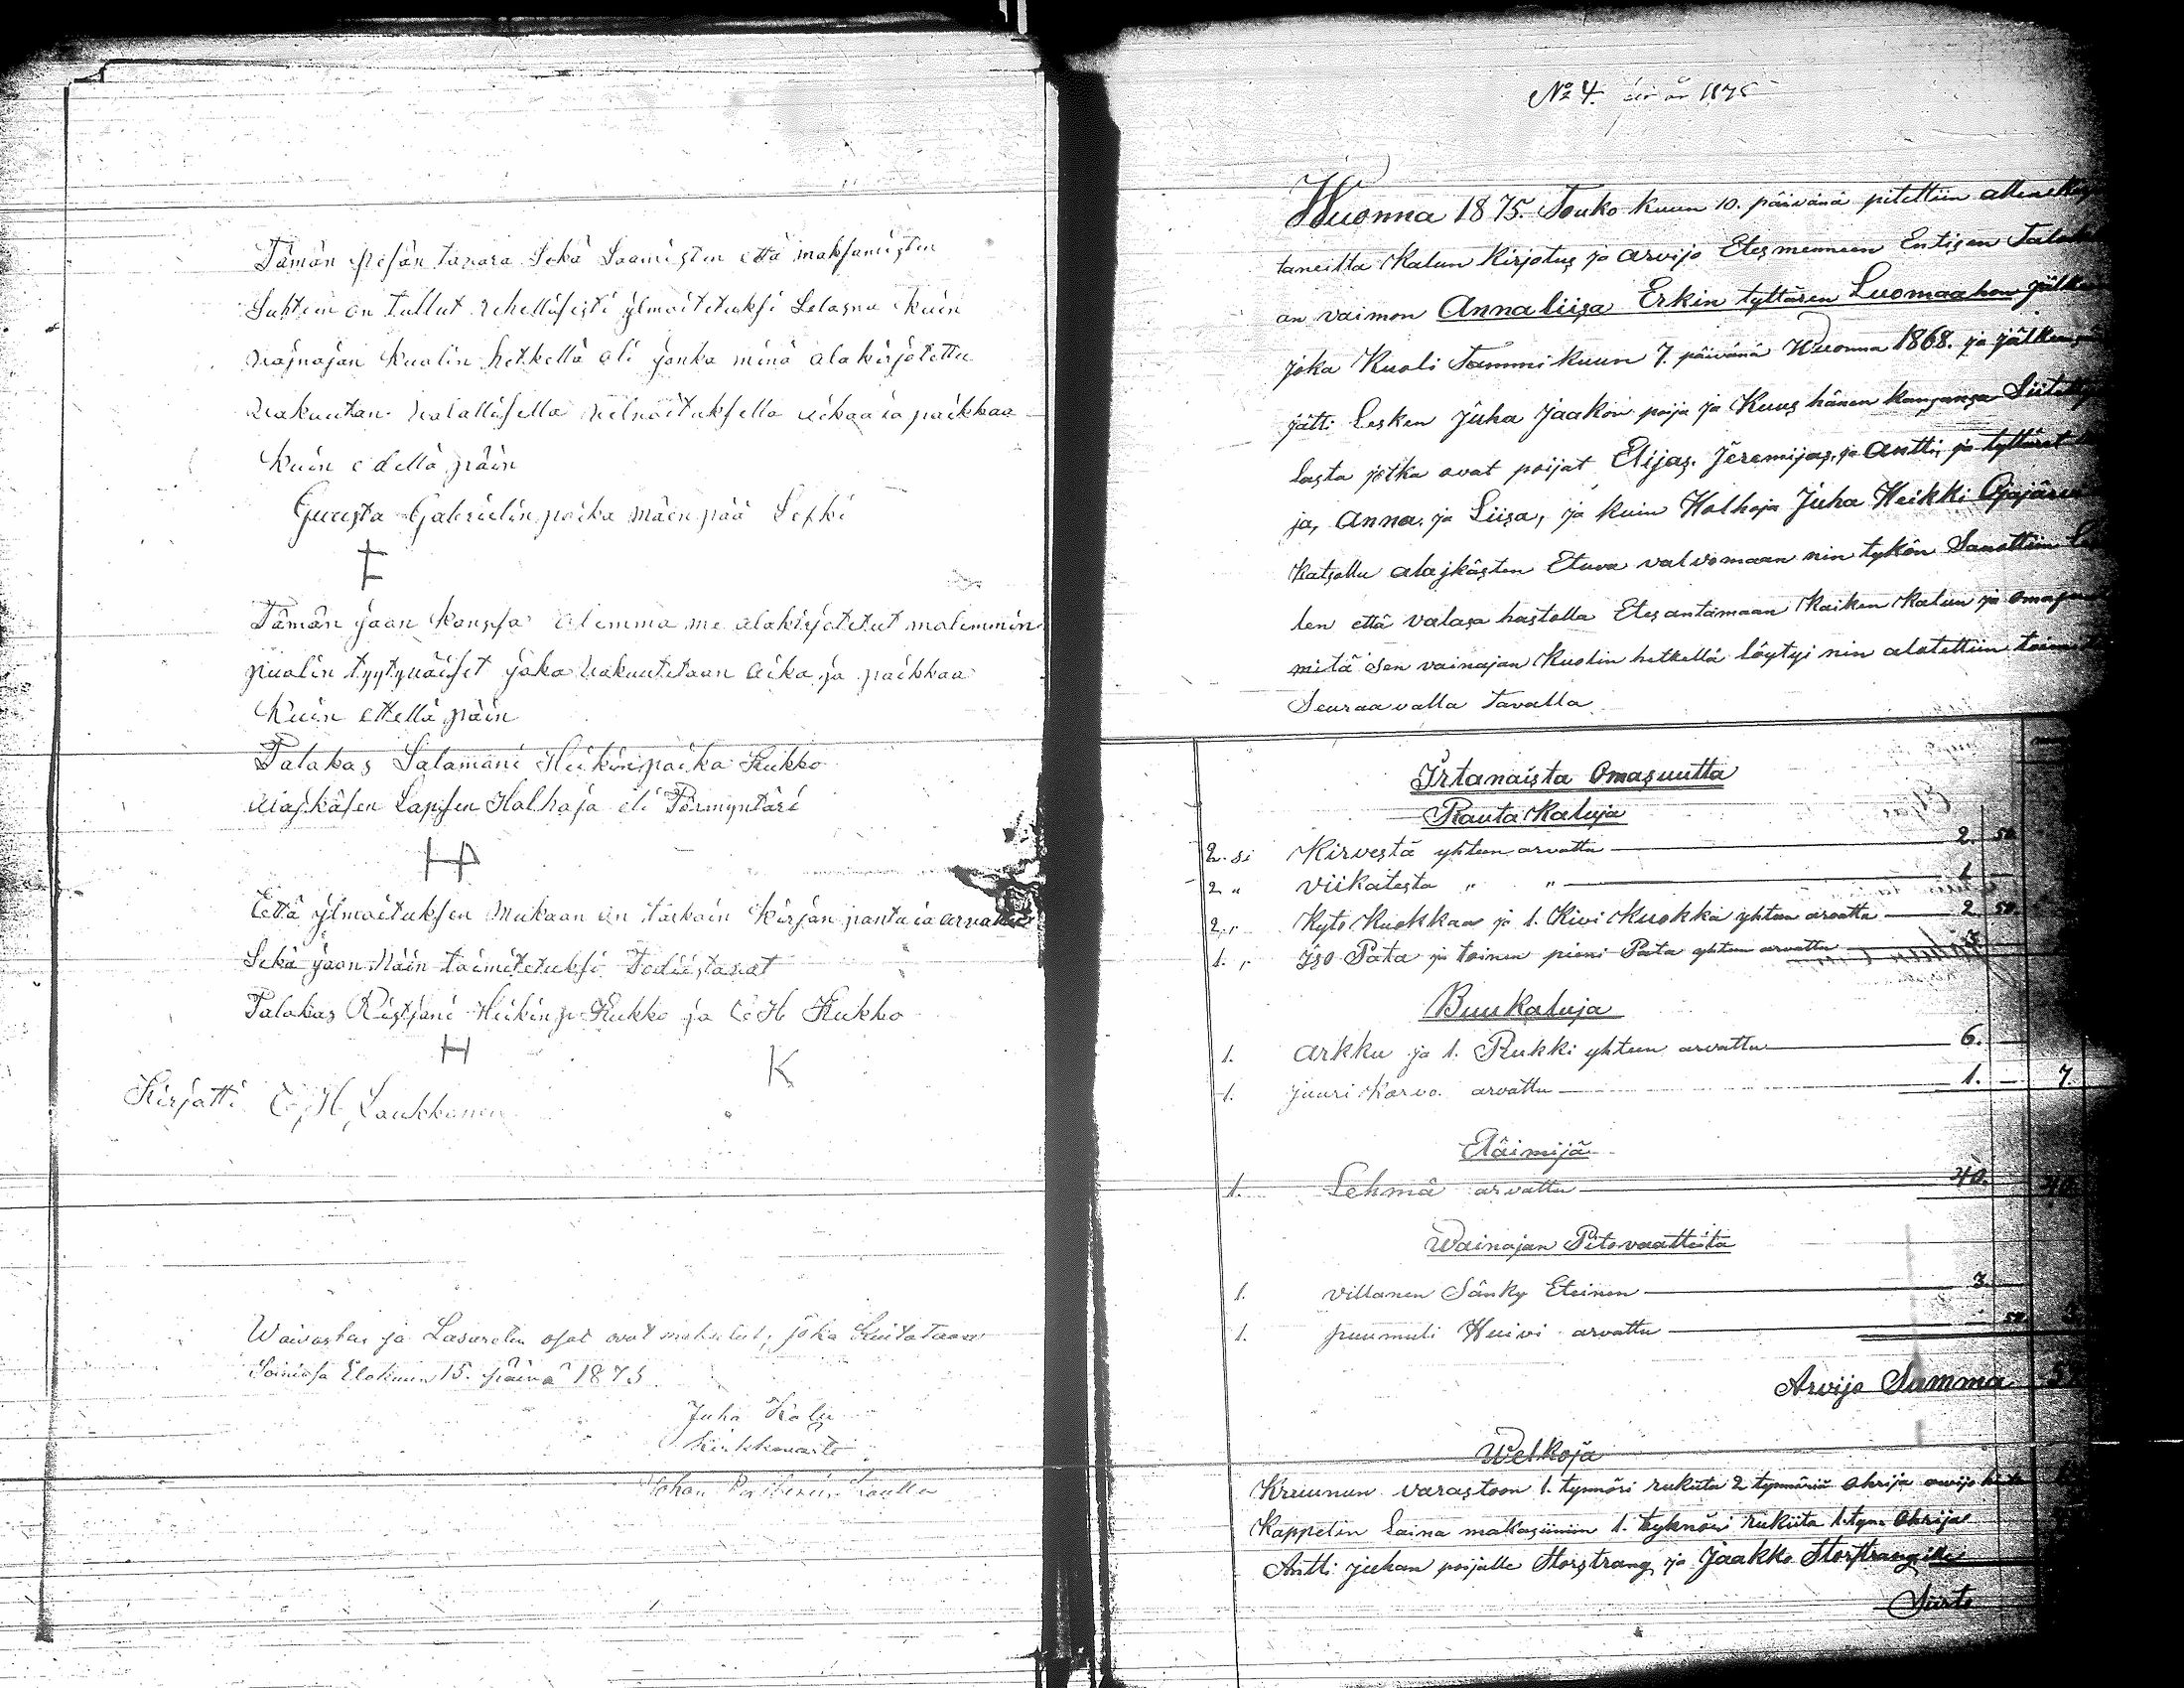 Tämän pesän tavara Sekä Saamisten että maksamisten
Suhteen on tullut rehellisesti ylmoitetuksi Selasna kuin
vajnajan kuolin hetkellä oli jonka minä alakirjotettu
vakuutan valallisella velvoituksella aikaa ja paikkaa
kuin edellä päin
Guusta Gabrielin poika mäen pää Leski
Tämän jaon kanssa olemma me alakirjotetut molemmin
puolin tyytyväiset joka vakuutetaan aika ja paikkaa
kuin ettellä päin
Talakas Salamoni Heikin poika Kukko
alajkäsen Lapsen Holhoja eli Förmyntäri
H
Että ylmoituksen mukaan on tarkoin kirjan panta ia arvattu
Sekä jaon Näin toimitetuksi Todistavat
Talakas Ristjani Heikin p. Kukko ja E H Kukko
H K
Kirjotti E. H. Laukkonen
Waivasten ja Lasaretin osat ovat maksetut, joka kuitataan
Soinissa Elokuun 15. päivä 1875
Juha Kalu
Kirkkovärti
Johan
No 4.
1875
Wuonna 1875. Touko kuun 10. päivänä pitettiin
taneitta Kalun Kirjotus ja arvijo Etesmenneen Entisen
an vaimon Annaliisa Erkin tyttären Luomaahon
joka Kuoli Tammi kuun 7. päivänä Wuonna 1868. ja
jätti Lesken Juha Jaakon poija ja Kuus hänen kansansa
lasta jotka ovat poijat Elijas. Jeremijas, ja Antti, ja tyttäret
ja, Anna. ja Liisa, ja kuin Holhoja Juha Heikki
Katsottu alajkästen Etuva valvomaan nin tykön Sanottiin
len että valasa hastolla Etes antamaan Kaiken Kalun ja
mitä sen vainajan Kuolin hetkellä löytyi nin alotettiin
Seuraavalla tavalla
Irtanaista Omasuutta
Rauta Kaluja
2. si Kirvestä yhteen arvattu 2. 50
2 " viikatesta " " 1
2 " Kyto Kuokkaa ja 1. Kivi Kuokka yhteen arvattu 2 50
1. " Iso Pata ja toinen pieni Pata yhteen arvattu
Buukaluja
1. Arkku ja 1. Rukki yhteen arvattu 6.
1. juuri Korvo. arvattu 1. 7
Eläimijä
1. Lehmä arvattu 40. 40
Wainajan Pitovaatteita
1. villanen Sänky Eteinen 3
1. puumuli Huivi arvattu 50
Arvijo Summa
Welkoja
Kruunun varastoon 1. tynnöri rukiita 2 tynnöriä ohrija
Kappelin Laina makasiiniin 1. tyknöri rukiita 1. tyn. ohrija
Antti juhan poijalle Storstrang ja Jaakko Storstrangille
Siirto